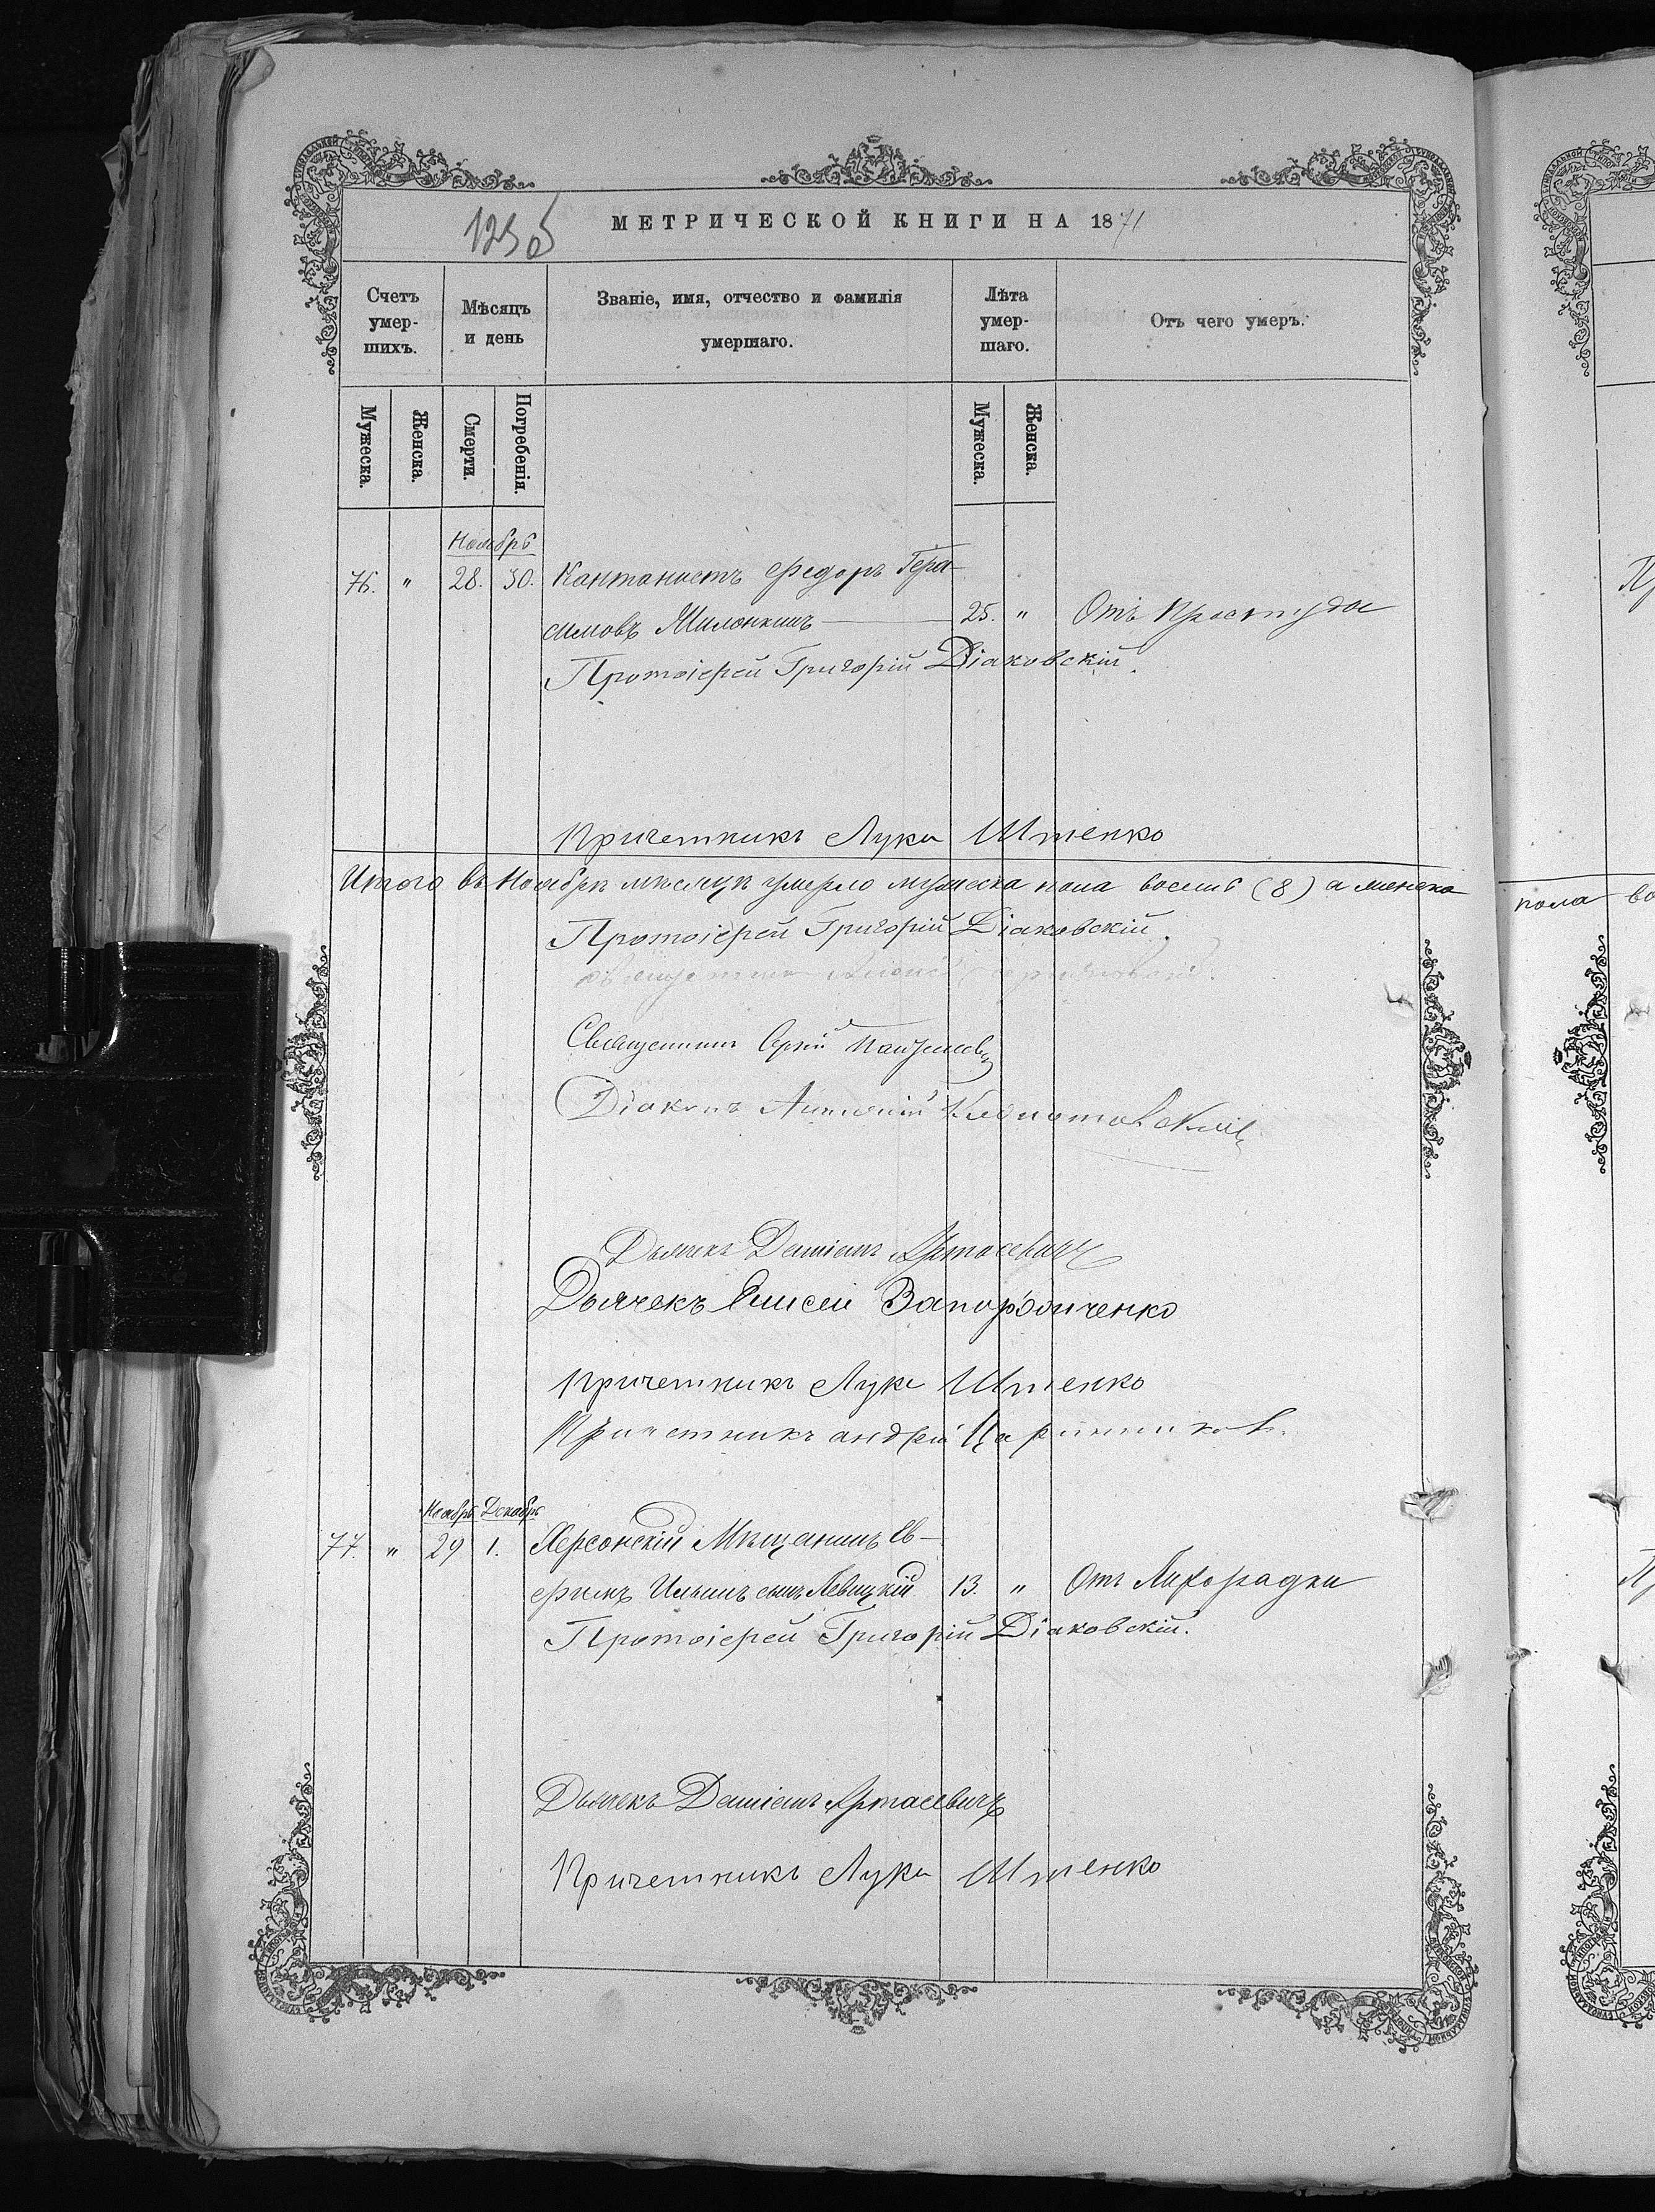 125об
МЕТРИЧЕСКОЙ КНИГИ НА 1871
Счетъ умер-шихъ.
Мѣсяцъ и день
Званіе, имя, отчество и фамилія умершаго.
Лѣта умер-шаго.
Отъ чего умеръ.
Мужеска. Женска. Смерти. Погребенія. Мужеска. Женска.
Ноябрь
76. " 28. 30. Кантонистъ Федоръ Гера-
симовъ Милонкинъ 25. " Отъ Простуды
Протоіерей Григорій Діаковскій.
Причетникъ Лука Штенко
Итого въ Ноябрѣ мѣсяцѣ умерло мужеска пола восемь (8) а женска
пола
Протоіерей Григорій Діаковскій.
Священникъ
Діаконъ Антоній
Дьячекъ Даміанъ Артасевичъ
Дьячекъ Елисей
Причетникъ Лука Штенко
Причетникъ Андрей
Ноябрь Декабрь
77. " 29 1. Херсонскій Мѣщанинъ Ев-
фимъ Ильинъ сынъ Левицкій 13. " Отъ Лихорадки
Протоіерей Григорій Діаковскій.
Дьячекъ Даміанъ Артасевичъ
Причетникъ Лука Штенко